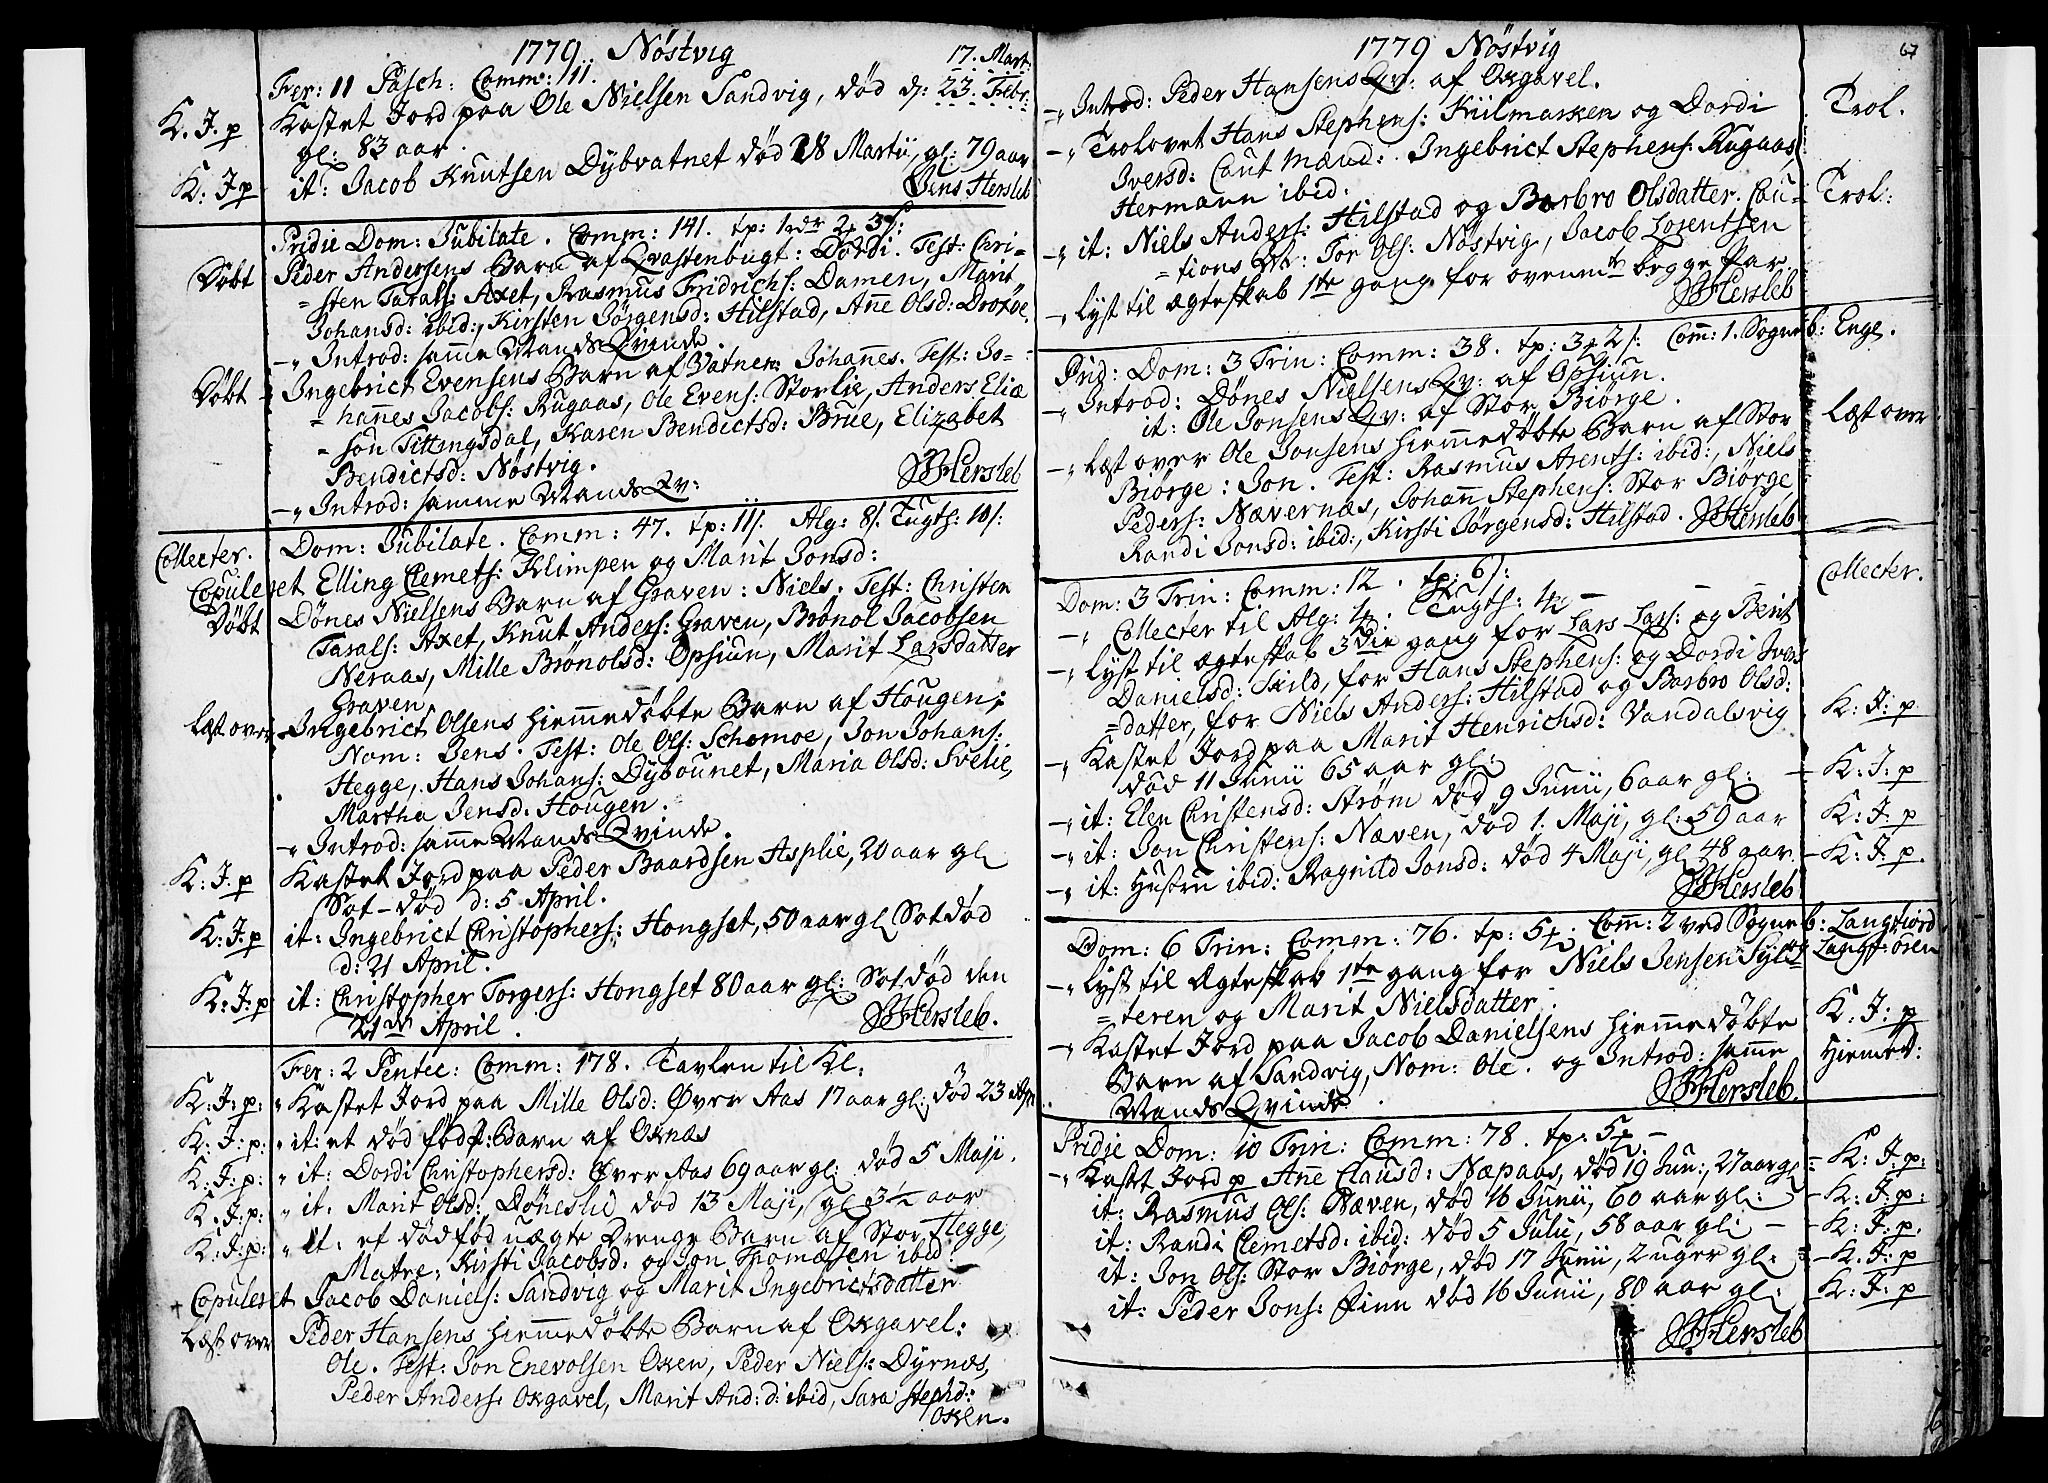 1779. Nöstvig
17. Mart:
Fer: 11 Pasch: Comm: 111.
K. J. p Kastet Jord paa Ole Nielsen Sandvig, død d: 23. Febr:
gl: 83 aar.
K: J: p it: Jacob Knutsen Dybvatnet død 28 Martii, gl: 79 aar
Jens Hersleb
Pridie Dom: Jubilate. Comm: 141. tp:
Døbt Peder Andersens Barn af Qvastenbugt: Dordi. Test: Chri-
=sten Tarals: Axet, Rasmus Fridrichs: Damen, Marit
Johansd: ibid:, Kirsten Jörgensd: Hilstad, Anne Olsd: Drotöe.
-„ Introd: samme Mands Qvinde.
Døbt Ingebrict Evensens Barn af Vatnen: Johannes. Test: Jo-
=hannes Jacobs: Rugaas, Ole Evens: Storlie, Anders Eliæ
=son Fittingsdal, Karen Bendictsd: Brue, Elizabet
Bendictsd: Nöstvig.
JBHersleb
-„ Introd: samme Mands Qv:
Collecter. Dom: Jubilate. Comm: 47. tp: 11/. Alg: 8/. Tugts: 10/.
Copuleret Elling Clemets: Klimpen og Marit Jonsd:
Døbt Dönes Nielsens Barn af Graven: Niels. Test: Christen
Tarals: Axet, Knut Anders: Graven, Brönol Jacobsen
Neraas, Mille Brönolsd: Opsiun, Marit Larsdatter
Graven.
Læst over Ingebrict Olsens hiemmedøbte Barn af Hougen;
Nom: Jens. Test: Ole Ols: Schomoe, Jon Johans:
Hegge, Hans Johans: Dybounet, Maria Olsd: Svelie,
Martha Jensd: Hougen.
-„ Introd: samme Mands Qvinde.
K: J. p Kastet Jord paa Peder Baardsen Asplie, 20 aar gl
Sot-død d: 5. April.
K: J. p it: Ingebrict Christophers: Hongset, 50 aar gl Sotdød
d: 21 April.
K: J: p it: Christopher Torgers: Hongset 80 aar gl: Sotdød den
21de April.
JBHersleb.
Fer: 2 Pentec: Comm: 178. Tavlen til Kl:
K: J: p: „ Kastet Jord paa Mille Olsd: Øver Aas 17 aar gl: død 23 Apr
K: J: p: „ it: et død født Barn af Oxnæs
K: J: p: „ it: Dordi Christophersd: Øver Aas 69 aar gl: død 5 Maji.
K: J: p: „ it. Marit Olsd: Döneslie død 13 Maji, gl 3½ aar
K: J: p: „ it. et dødfød uægte Drenge Barn af Stor Hegge,
Matre, Kirsti Jacobsd: og Jon Thomæsen ibid:
Copuleret Jacob Daniels: Sandvig og Marit Ingebrictsdatter
Læst over Peder Hansens hiemmedøbte Barn af Oxgavel:
Ole. Test: Jon Enevolsen Oxen, Peder Niels: Dyrnæs,
Peder Anders: Oxgavel, Marit And: d: ibid, Sara Stephd:
Oxen.
1779 Nöstvig
67
-„ Introd: Peder Hansens Qv: af Oxgavel.
-„ Trolovet Hans Stephens: Kiilmarken og Dordi Trol.
Iversd: Caut Mænd: Ingebrict Stephens: Rugaas
Hermann ibid:
-„ it: Niels Anders: Hilstad og Barbro Olsdatter. Cau- Trol:
=tions M: Tor Ols: Nöstvig, Jacob Lorentsen
-„ lyst til ægteskab 1ste gang for ovenmte begge Par.
JBHersleb
Prid: Dom: 3 Trin: Comm: 38. tp: Comm: 1. Sogneb: Enge.
-„ Introd: Dönes Nielsens Qv: af Opsiun.
it: Ole Jonsens Qv: af Stor Biørge.
-„ læst over Ole Jonsens hiemmedøbte Barn af Stor Læst over
Biørge: Jon. Test: Rasmus Arents: ibid:, Niels
Peders: Nævernæs, Johann Stephens: Stor Biørge
Randi Jonsd: ibid:, Kirsti Jörgensd: Hilstad. JBHersleb
Dom: 3 Trin: Comm: 12. tp: 6/:
-„ Collecter til Alg: Tugts: Collecter.
-„ lyst til ægteskab 3die gang for Lars Lars: og Berit
Danielsd: Skild, for Hans Stephens: og Dordi Ivers
=datter, for Niels Anders: Hilstad og Barbro Olsd:
-„ Kastet Jord paa Marit Henrichsd: Vandalsvig K: J: p
død 11 Junii 65 aar gl:
-„ it: Elen Christensd: Strøm død 9 Junii, 6 aar gl: K: J: p
-„ it: Jon Christens: Næven, død 1. Maji, gl: 59 aar K: J: p
-„ it: Hustru ibid: Ragnild Jonsd: død 4 Maji, gl 48 aar. K: J: p.
JBHersleb
Dom: 6 Trin: Comm: 76. tp: Com: 2 ved Sogneb: Langfiord
-„ lyst til Ægteskab 1ste gang for Niels Jensen Sylt- og Langf: ören
=teren og Marit Nielsdatter.
-„ Kastet Jord paa Jacob Danielsens hiemmedøbte K: J: p
Barn af Sandvig, Nom: Ole. og Introd: samme Hiemed:
Mands Qvinde.
JBHersleb.
Pridie Dom: 10 Trin: Comm: 78. tp:
-„ Kastet Jord p Anne Clausd: Næpaas, død 19 Jun:, 27 aar gl K: J: p:
it: Rasmus Ols: Næven, død 16 Junii, 60 aar gl: K: J: p:
it: Randi Clemetsd: ibid: død 5 Julii, 58 aar gl: K: J: p.
it: Jon Ols: Stor Biørge, død 17 Junii, 2 uger gl: K: J: p
it: Peder Jons: Finn død 16 Junii, 80 aar gl: K: J: p
JBHersleb